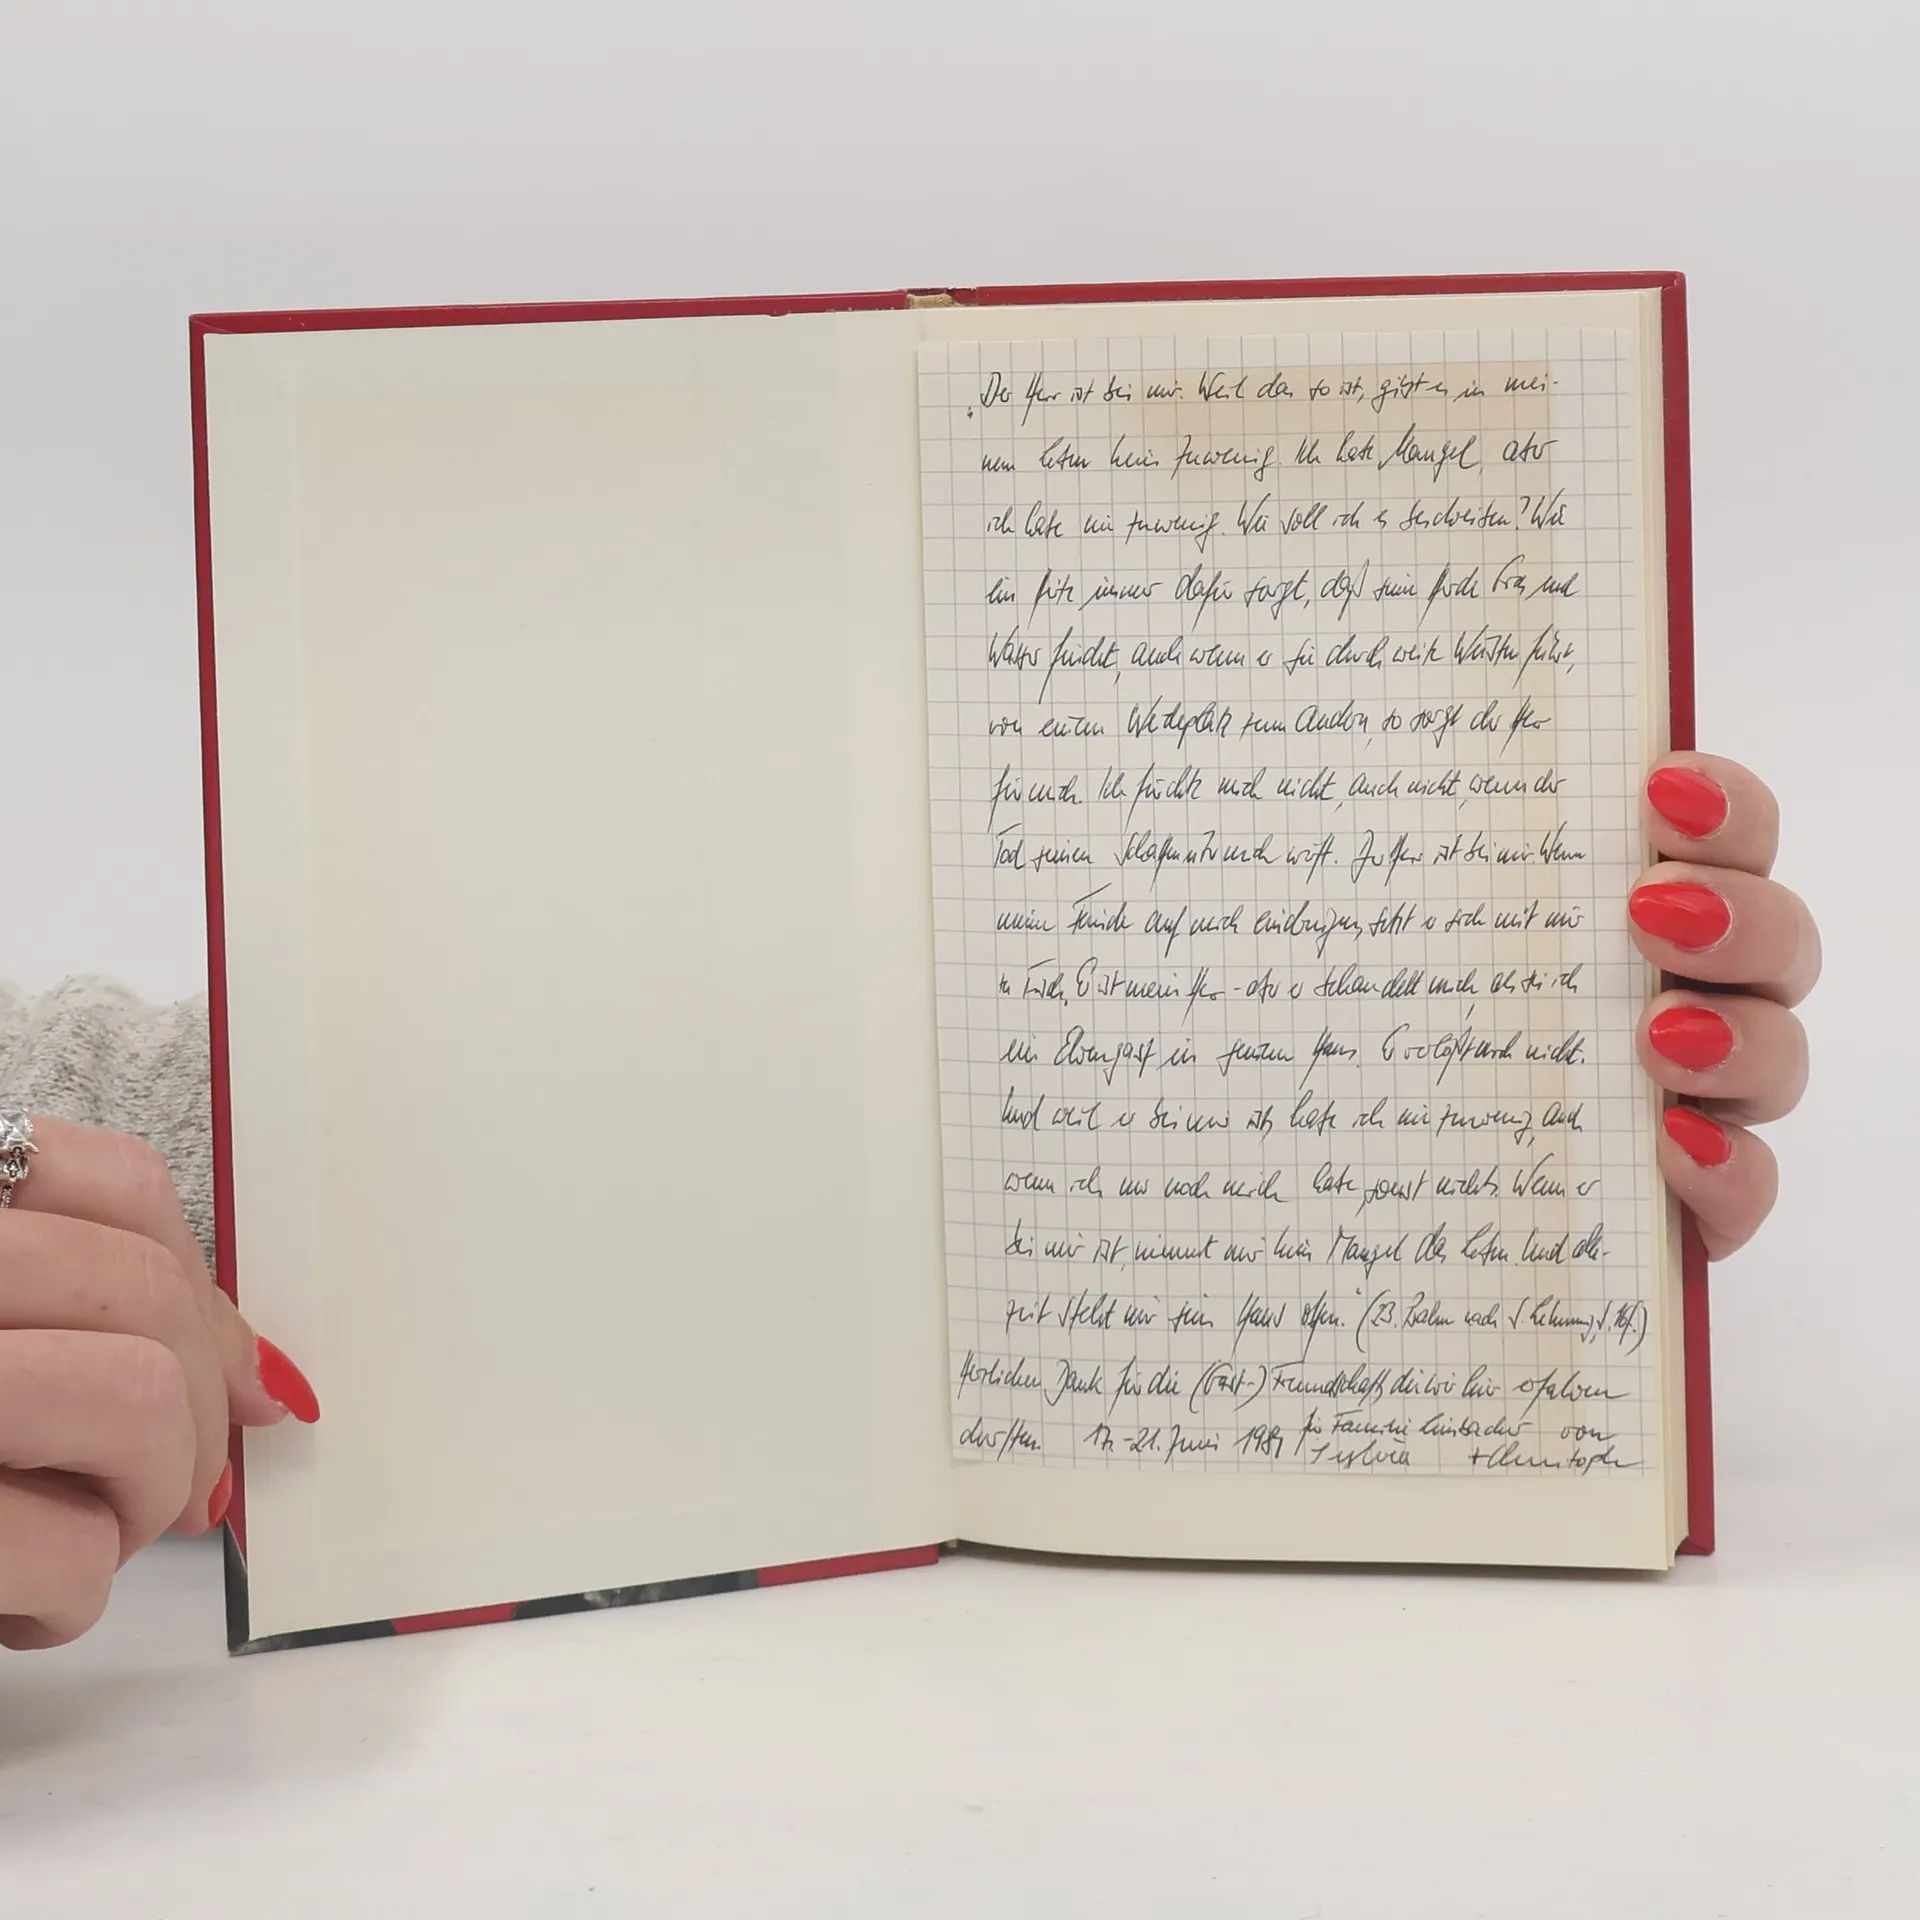 „Der Herr ist bei mir. Weil das so ist, gibt es in mei-
nem Leben kein Zuwenig. Ich habe Mangel, aber
ich habe nie zuwenig. Wie soll ich es beschreiben? Wie
ein Hirte immer dafür sorgt, daß seine Herde Gras und
Wasser findet, auch wenn er sie durch weite Wüsten führt,
von einem Weideplatz zum Andern, so sorgt der Herr
für mich. Ich fürchte mich nicht, auch nicht, wenn der
Tod seinen Schatten über mich wirft. Der Herr ist bei mir. Wenn
meine Feinde auf mich eindringen, setzt er sich mit mir
zu Tisch. Er ist mein Herr - aber er behandelt mich, als sei ich
ein Ehrengast in seinem Haus. Er verläßt mich nicht.
Und weil er bei mir ist, habe ich nie zuwenig, auch
wenn ich nur noch mich habe, sonst nichts. Wenn er
bei mir ist, nimmt mir kein Mangel das Leben. Und alle-
zeit steht mir sein Haus offen." (23. Psalm nach J.
Herzlichen Dank für die (Gast-) Freundschaft, die wir hier erfahren
durften. 17.-21. Juni 198 für Familie von
Sylvia + Christoph